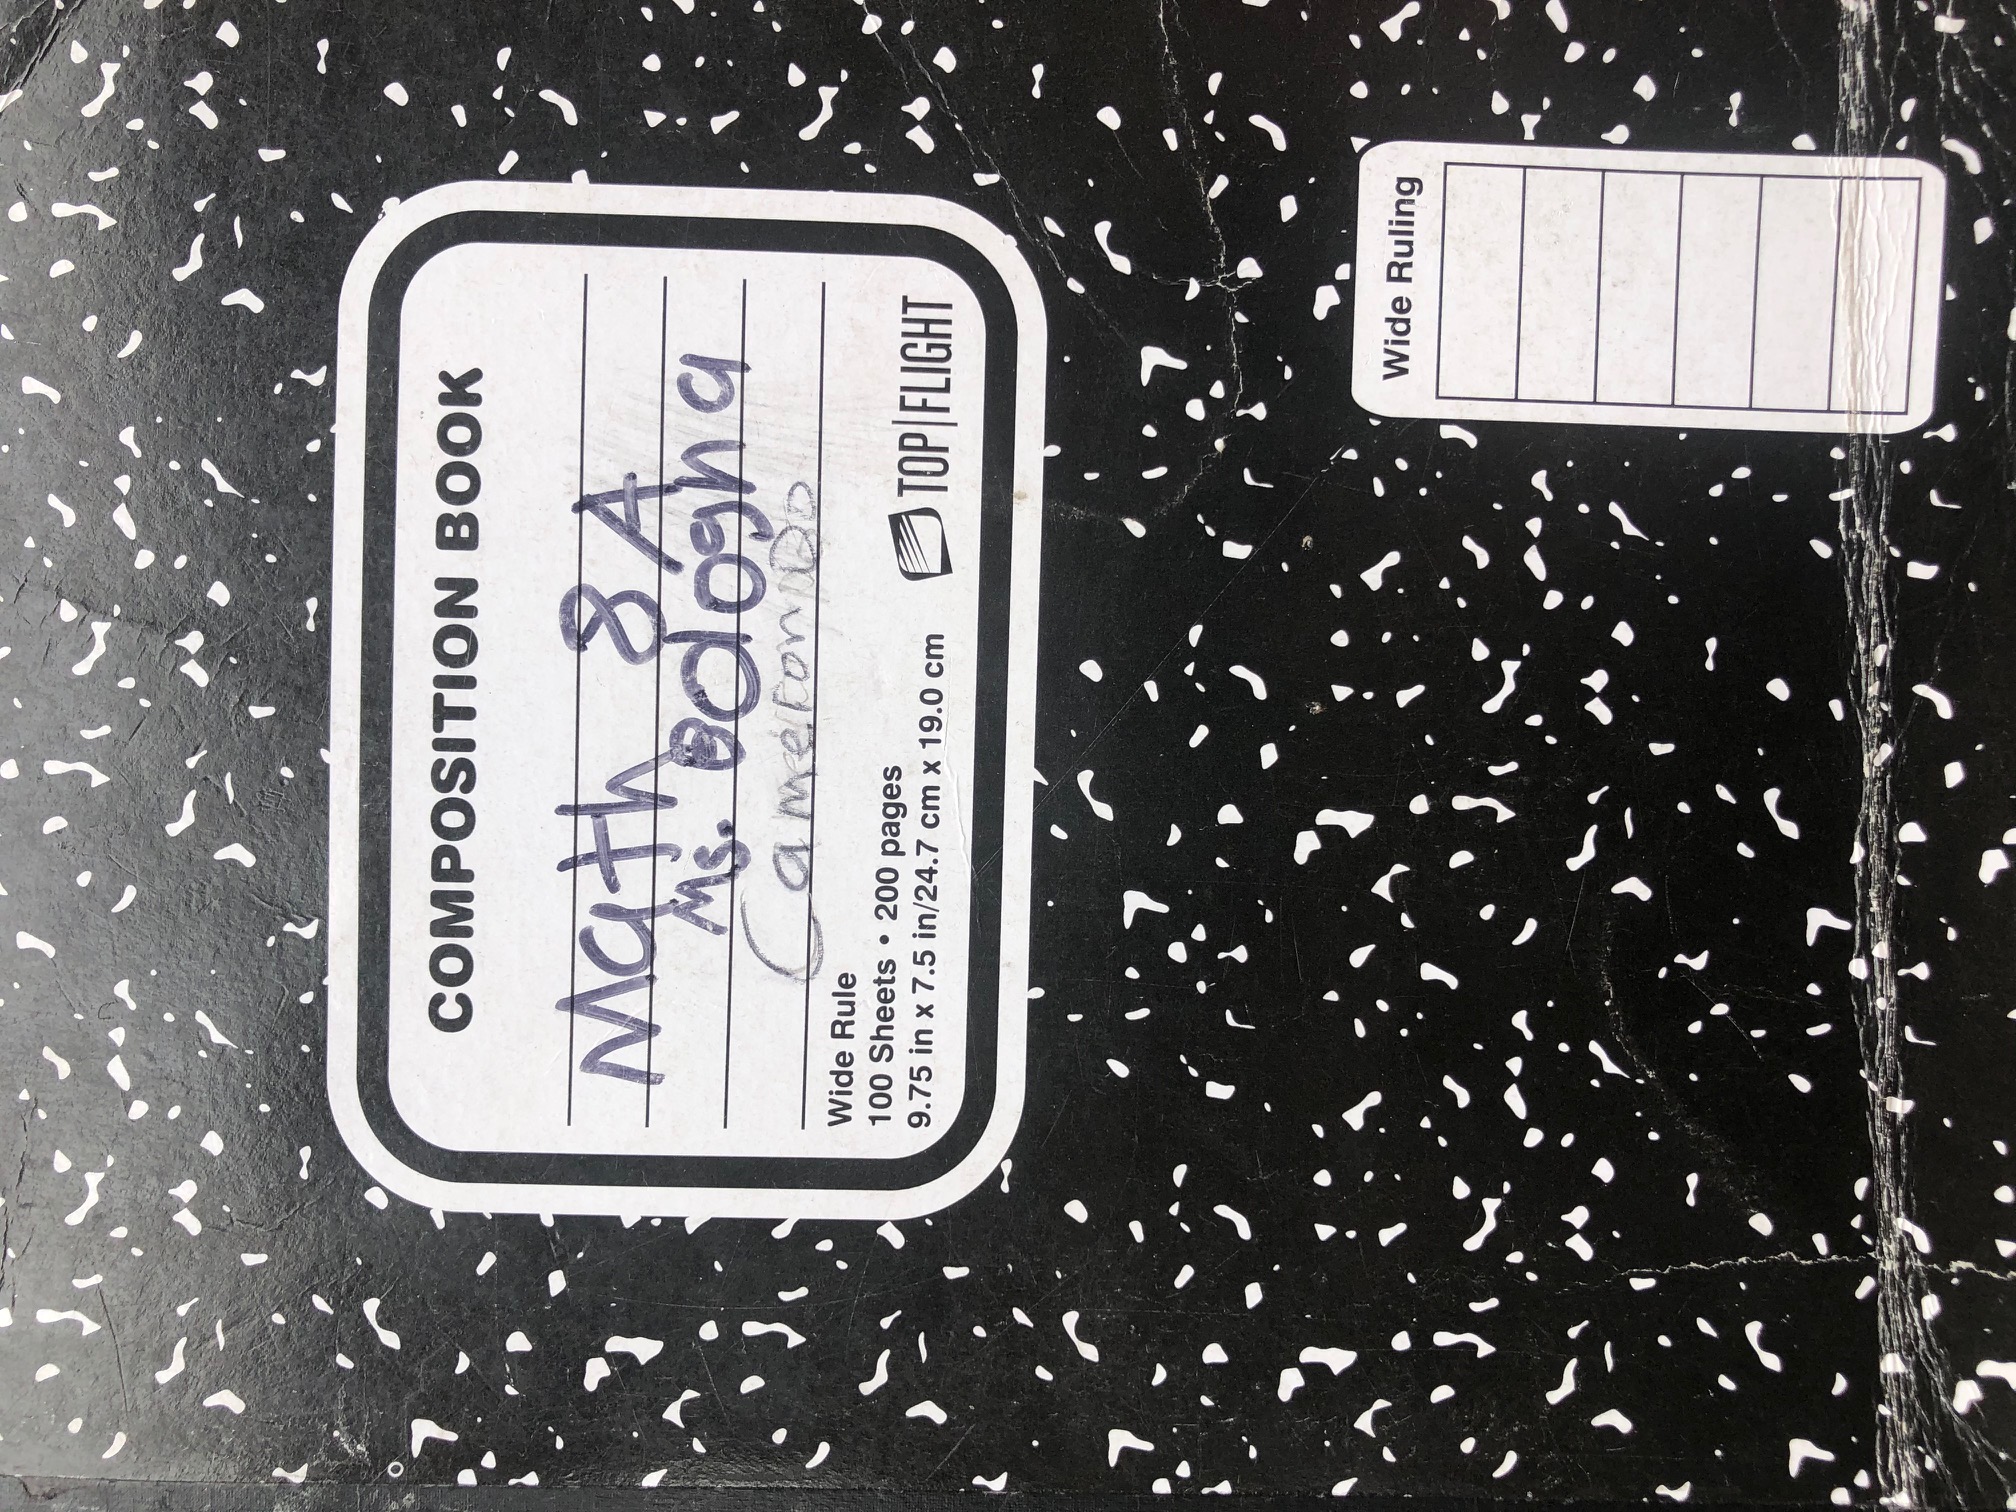 COMPOSITION BOOK
Math 8A
Ms. Bologna
Cameron Do
Wide Rule
100 Sheets • 200 pages
9.75 in x 7.5 in/24.7 cm x 19.0 cm
TOP|FLIGHT
Wide Ruling